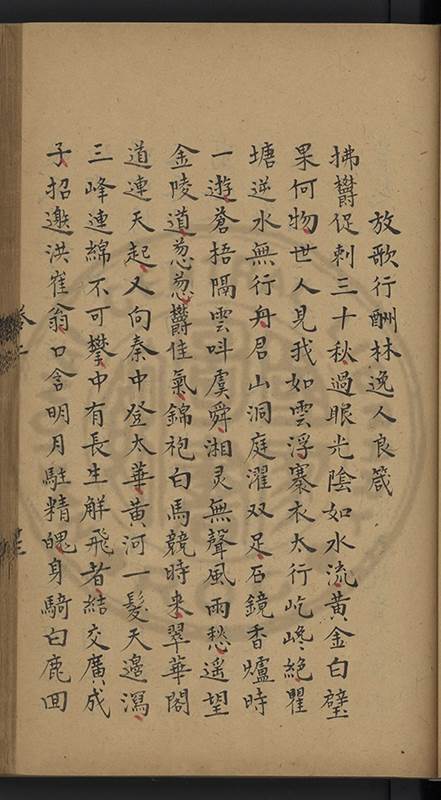 放歌行酬林逸人良箴
拂欝促刺三十秋過眼光陰如水流黃金白璧
果何物世人見我如雲浮褰衣太行屹嵱絶瞿
塘逆水無行舟君山洞庭濯双足石鏡香爐時
一遊蒼梧隔雲叫虞舜湘灵無聲風雨愁遥望
金陵道葱葱欝佳氣錦袍白馬競時来翠華閣
道連天起又向秦中登太華黄河一髮天邉瀉
三峰連綿不可攀中有長生觧飛者結交廣成
子招邀洪崔翁口含明月駐精魄身騎白鹿囬